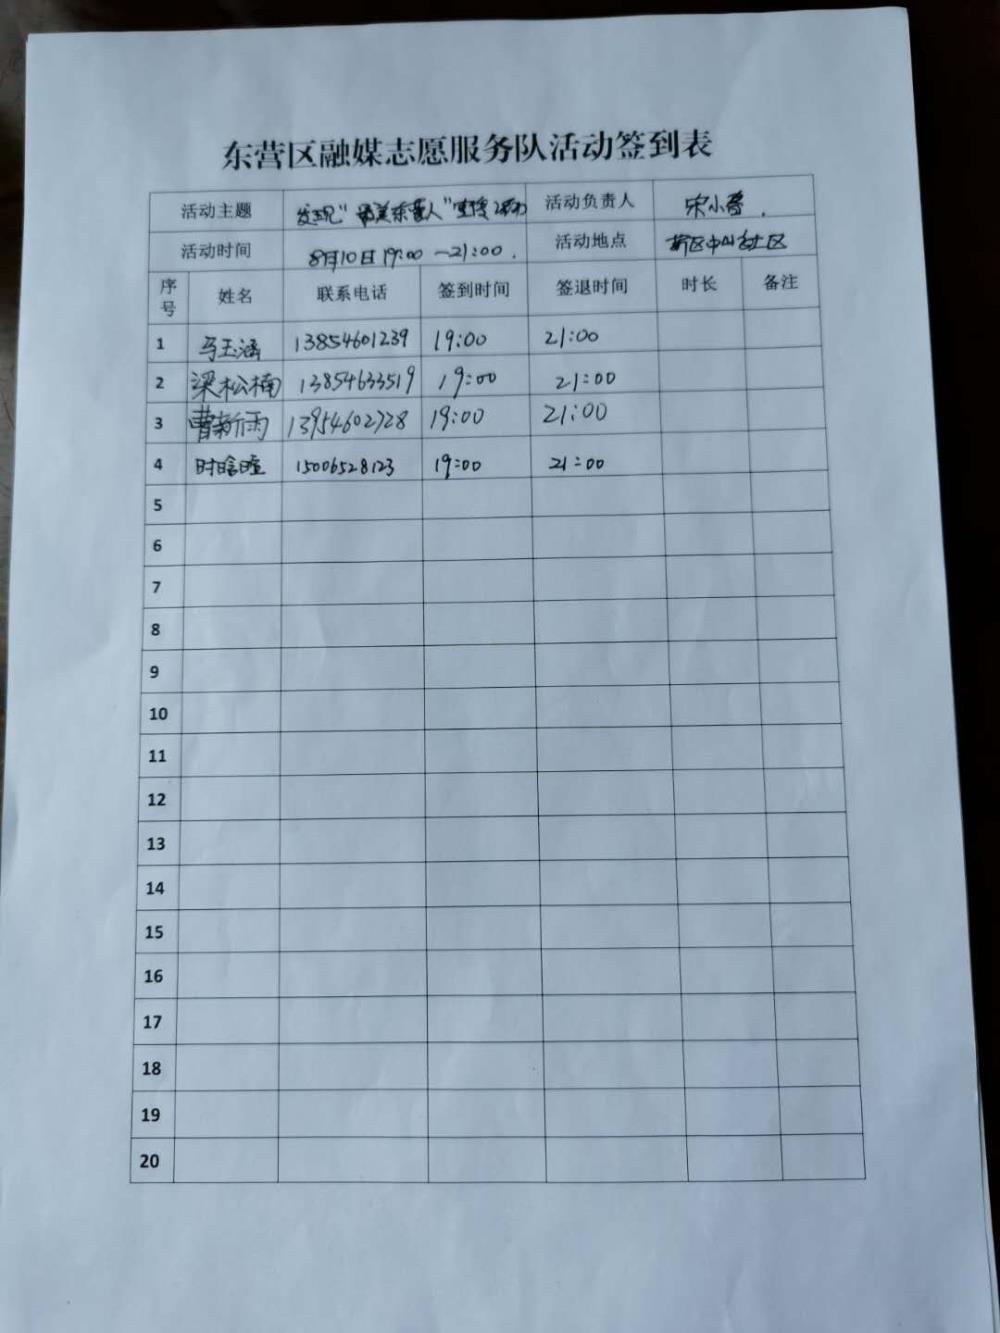 东营区融媒志愿服务队活动签到表
活动主题 发现"最美东营人"宣传活动 活动负责人 宋小蓉
活动时间 8月10日19:00—21:00. 活动地点 新区中山社区
序号 姓名 联系电话 签到时间 签退时间 时长 备注
1 马玉涵 13854601239 19:00 21:00
2 梁松楠 13854633519 19:00 21:00
3 曹新雨 13954602728 19:00 21:00
4 时晗瞳 15006528123 19:00 21:00
5
6
7
8
9
10
11
12
13
14
15
16
17
18
19
20